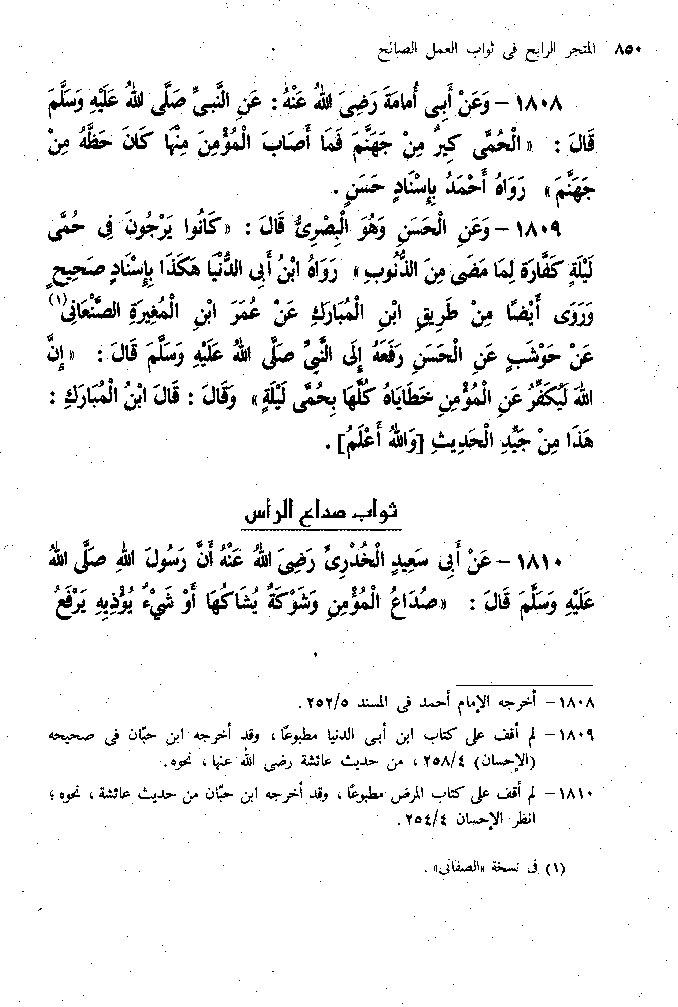 ٨٥٠ المتجر الرابح فى ثواب العمل الصالح
١٨٠٨ – وَعَنْ أَبِى أُمَامَةَ رَضِىَ اللهُ عَنْهُ : عَنِ النَّبِىِّ صَلَّى اللهُ عَلَيْهِ وَسَلَّمَ
قَالَ : « الْحُمَّى كِيرٌ مِنْ جَهَنَّمَ فَمَا أَصَابَ الْمُؤْمِنَ مِنْهَا كَانَ حَظَّهُ مِنْ
جَهَنَّمَ » رَوَاهُ أَحْمَدُ بِإِسْنَادٍ حَسَنٍ .
١٨٠٩ – وَعَنِ الْحَسَنِ وَهُوَ الْبِصْرِىُّ قَالَ : « كَانُوا يَرْجُونَ فِى حُمَّى
لَيْلَةٍ كَفَّارَة لِمَا مَضَى مِنَ الذُّنُوبِ » رَوَاهُ ابْنُ أَبِى الدُّنْيَا هَكَذَا بِإِسْنَادٍ صَحِيحٍ
وَرَوَى أَيْضًا مِنْ طَرِيقِ ابْنِ الْمُبَارَكِ عَنْ عُمَرَ ابْنِ الْمُغِيرَةِ الصَّنْعَانِى(١)
عَنْ حَوْشَبٍ عَنِ الْحَسَنِ رَفَعَهُ إِلَى النَّبِىِّ صَلَّى اللهُ عَلَيْهِ وَسَلَّمَ قَالَ : « إِنَّ
اللهَ لَيُكَفِّرُ عَنِ الْمُؤْمِنِ خَطَايَاهُ كُلَّهَا بِحُمَّى لَيْلَةٍ » وَقَالَ : قَالَ ابْنُ الْمُبَارَكِ :
هَذَا مِنْ جَيِّدِ الْحَدِيثِ [وَاللهُ أَعْلَمُ] .
ثواب صداع الرأس
١٨١٠ – عَنْ أَبِى سَعِيدٍ الْخُدْرِىِّ رَضِىَ اللهُ عَنْهُ أَنَّ رَسُولَ اللهِ صَلَّى اللهُ
عَلَيْهِ وَسَلَّمَ قَالَ : « صُدَاعُ الْمُؤْمِنِ وَشَوْكَةٌ يُشَاكُهَا أَوْ شَىْءٌ يُؤْذِيهِ يَرْفَعُ
١٨٠٨– أخرجه الإمام أحمد فى المسند ٢٥٢/٥ .
١٨٠٩– لم أقف على كتاب ابن أبى الدنيا مطبوعًا ، وقد أخرجه ابن حبّان فى صحيحه
(الإحسان) ٢٥٨/٤ ، من حديث عائشة رضى الله عنها ، نحوه.
١٨١٠– لم أقف على كتاب المرض مطبوعًا ، وقد أخرجه ابن حبّان من حديث عائشة ، نحوه ؛
انظر الإحسان ٢٥٤/٤ .
(١) فى نسخة «الصفانى» .